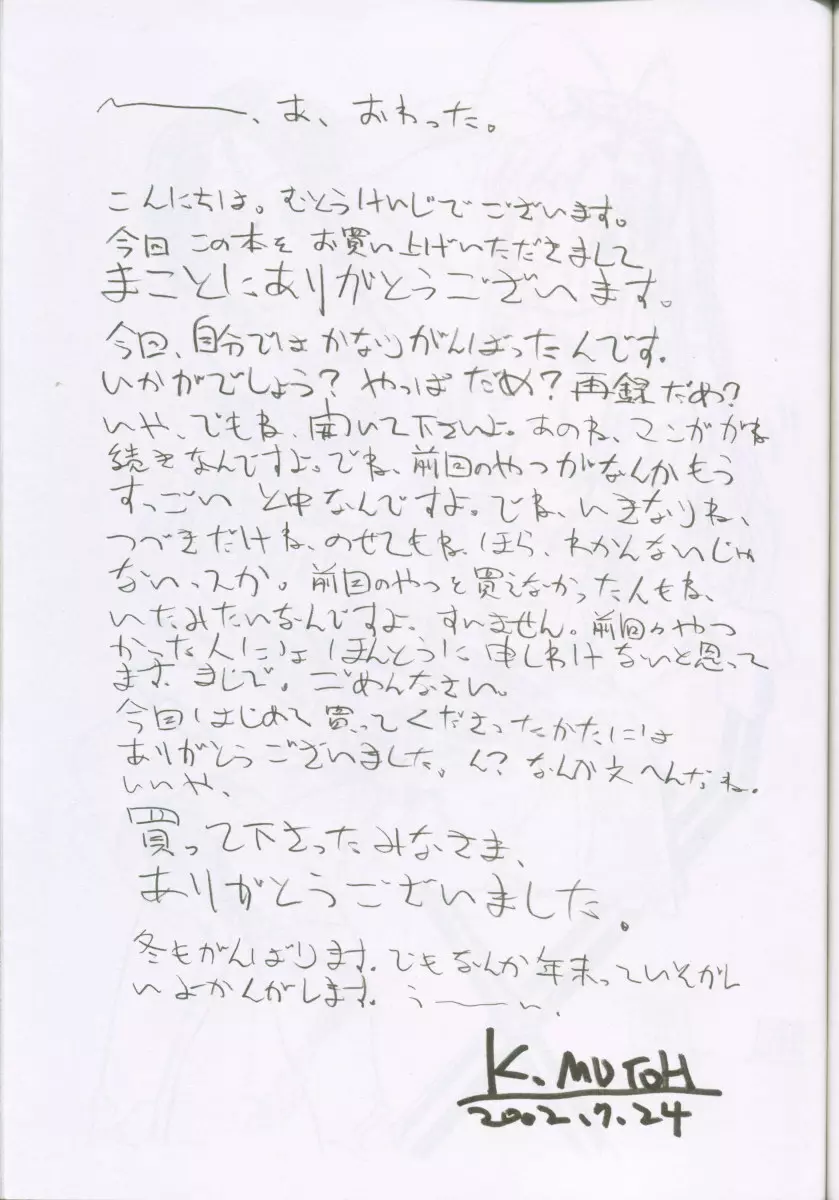 〜――、あ、おわった。
こんにちは。むとうけいじでございます。
今回この本をお買い上げいただきまして
まことにありがとうございます。
今回、自分ではかなりがんばったんです。
いかがでしょう？やっぱだめ？再録だめ？
いや、でもね、聞いて下さいよ。あのね、マンガがね
続きなんですよ。でね、前回のやつがなんかもう
すっごい と中なんですよ。でね、いきなりね、
つづきだけね、のせてもね、ほら、わかんないじゃ
ないっスか。前回のやつを買えなかった人もね、
いたみたいなんですよ、すいません。前回のやつ
かった人にはほんとうに申しわけないと思って
ます。まじで。ごめんなさい。
今回はじめて買ってくださったかたには
ありがとうございました。ん？なんか文へんだね。
いいや、
買って下さったみなさま、
ありがとうございました。
冬もがんばります。でもなんか年末っていそがし
いよかんがします。うーい、
K. MUTOH
2002.7.24